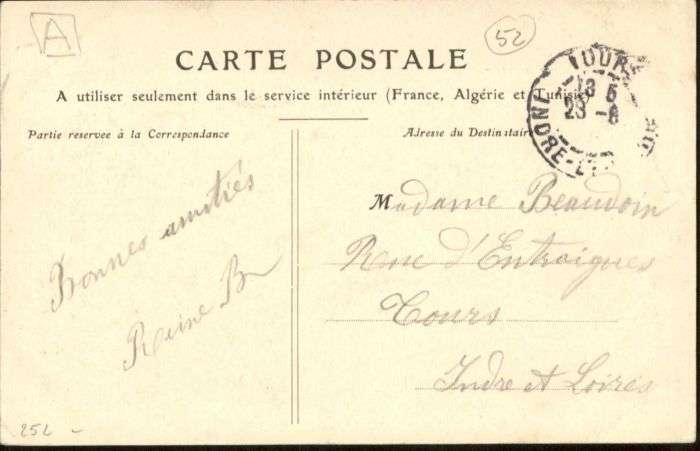 A
52
CARTE POSTALE
A utiliser seulement dans le service intérieur (France, Algérie et Tunisie)
Partie reservee à la Correspondance
Adresse du Destinataire
TOURS
13 5
23 -6
INDRE-ET
Bonnes amitiés
Reine B
Madame Beaudoin
Rue d'Entraigues
Tours
Indre et Loires
252 -